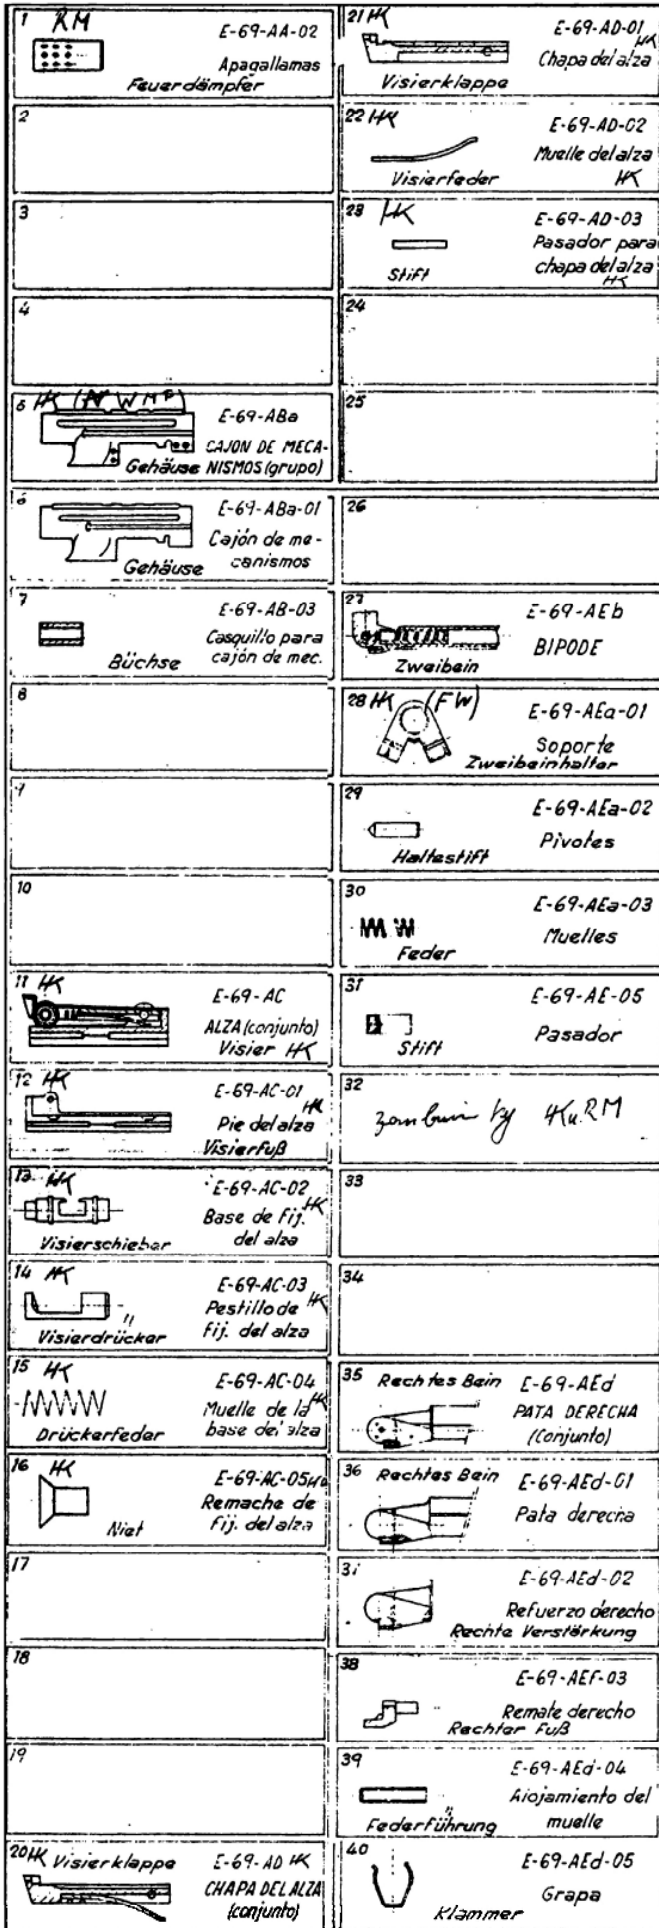 1 RM
E-69-AA-02
Apagallamas
Feuerdämpfer
2
3
4
5 HK
E-69-ABa
CAJON DE MECA-
Gehäuse NISMOS (grupo)
6
E-69-ABa-01
Cajón de me-
canismos
Gehäuse
7
E-69-AB-03
Casquillo para
cajón de mec.
Büchse
8
9
10
11 HK
E-69-AC
ALZA (conjunto)
Visier HK
12 HK
E-69-AC-01
HK
Pie del alza
Visierfuß
13 HK
E-69-AC-02
Base de fij. HK
del alza
Visierschieber
14 HK
E-69-AC-03
Pestillo de HK
fij. del alza
Visierdrücker
15 HK
E-69-AC-04
Muelle de la HK
base del alza
Drückerfeder
16 HK
E-69-AC-05
Remache de
fij. del alza
Niet
17
18
19
20 HK Visierklappe
E-69-AD HK
CHAPA DEL ALZA
(conjunto)
21 HK
E-69-AD-01
HK
Chapa del alza
Visierklappe
22 HK
E-69-AD-02
Muelle del alza
Visierfeder HK
23 HK
E-69-AD-03
Pasador para
chapa del alza
Stift HK
24
25
26
27
E-69-AEb
BIPODE
Zweibein
28 HK (FW)
E-69-AEa-01
Soporte
Zweibeinhalter
29
E-69-AEa-02
Pivotes
Haltestift
30
E-69-AEa-03
Muelles
Feder
31
E-69-AE-05
Pasador
Stift
32
HK u. RM
33
34
35 Rechtes Bein E-69-AEd
PATA DERECHA
(Conjunto)
36 Rechtes Bein E-69-AEd-01
Pata derecha
37
E-69-AEd-02
Refuerzo derecho
Rechte Verstärkung
38
E-69-AEf-03
Remate derecho
Rechter Fuß
39
E-69-AEd-04
Alojamiento del
muelle
Federführung
40
E-69-AEd-05
Grapa
Klammer